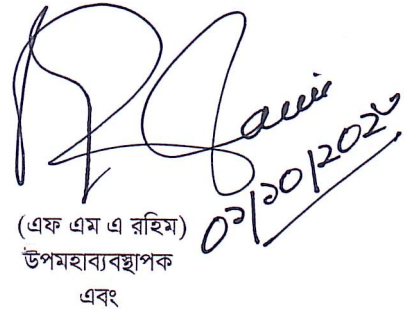 ০১/১০/২০২৩
(এফ এম এ রহিম)
উপমহাব্যবস্থাপক
এবং